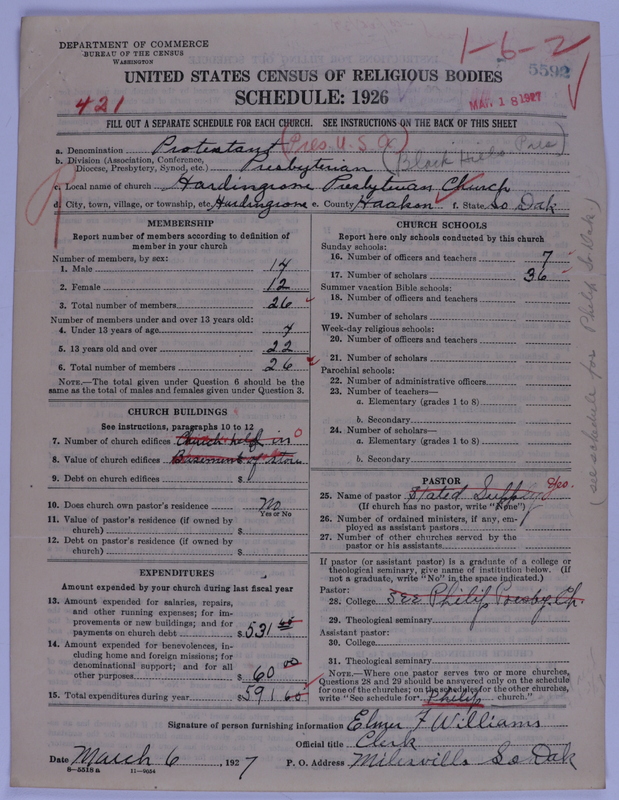 DEPARTMENT OF COMMERCE
BUREAU OF THE CENSUS
WASHINGTON
1-6-2
5592
UNITED STATES CENSUS OF RELIGIOUS BODIES
SCHEDULE: 1926
421
MAR 18 1927
FILL OUT A SEPARATE SCHEDULE FOR EACH CHURCH. SEE INSTRUCTIONS ON THE BACK OF THIS SHEET
a. Denomination Protestant (Pres. U.S.A.)
b. Division (Association, Conference, Diocese, Presbytery, Synod, etc.) Presbyterian (Black Hills Pres)
c. Local name of church Hardingrove Presbyterian Church
d. City, town, village, or township, etc. Hardingrove e. County Haakon f. State So Dak
MEMBERSHIP
Report number of members according to definition of member in your church
Number of members, by sex:
1. Male 14
2. Female 12
3. Total number of members 26
Number of members under and over 13 years old:
4. Under 13 years of age 4
5. 13 years old and over 22
6. Total number of members 26
NOTE.—The total given under Question 6 should be the same as the total of males and females given under Question 3.
CHURCH BUILDINGS
See instructions, paragraphs 10 to 12
7. Number of church edifices Church held in 0
8. Value of church edifices Basement of store
9. Debt on church edifices $
10. Does church own pastor's residence No
Yes or No
11. Value of pastor's residence (if owned by church) $
12. Debt on pastor's residence (if owned by church) $
EXPENDITURES
Amount expended by your church during last fiscal year
13. Amount expended for salaries, repairs, and other running expenses; for improvements or new buildings; and for payments on church debt $531 60
14. Amount expended for benevolences, including home and foreign missions; for denominational support; and for all other purposes $60 00
15. Total expenditures during year $591 60
CHURCH SCHOOLS
Report here only schools conducted by this church
Sunday schools:
16. Number of officers and teachers 7
17. Number of scholars 36
Summer vacation Bible schools:
18. Number of officers and teachers
19. Number of scholars
Week-day religious schools:
20. Number of officers and teachers
21. Number of scholars
Parochial schools:
22. Number of administrative officers
23. Number of teachers—
a. Elementary (grades 1 to 8)
b. Secondary
24. Number of scholars—
a. Elementary (grades 1 to 8)
b. Secondary
PASTOR
25. Name of pastor Stated Supply
(If church has no pastor, write "None")
26. Number of ordained ministers, if any, employed as assistant pastors
27. Number of other churches served by the pastor or his assistants
If pastor (or assistant pastor) is a graduate of a college or theological seminary, give name of institution below. (If not a graduate, write "No" in the space indicated.)
Pastor:
28. College See Philip Presby. Ch.
29. Theological seminary
Assistant pastor:
30. College
31. Theological seminary
NOTE.—Where one pastor serves two or more churches, Questions 28 and 29 should be answered only on the schedule for one of the churches; on the schedules for the other churches, write "See schedule for Philip church."
(see schedule for Philip So. Dak.)
Signature of person furnishing information Elmer F Williams
Official title Clerk
Date March 6, 1927 P. O. Address Milesville So Dak
8-5518 a 11-9054